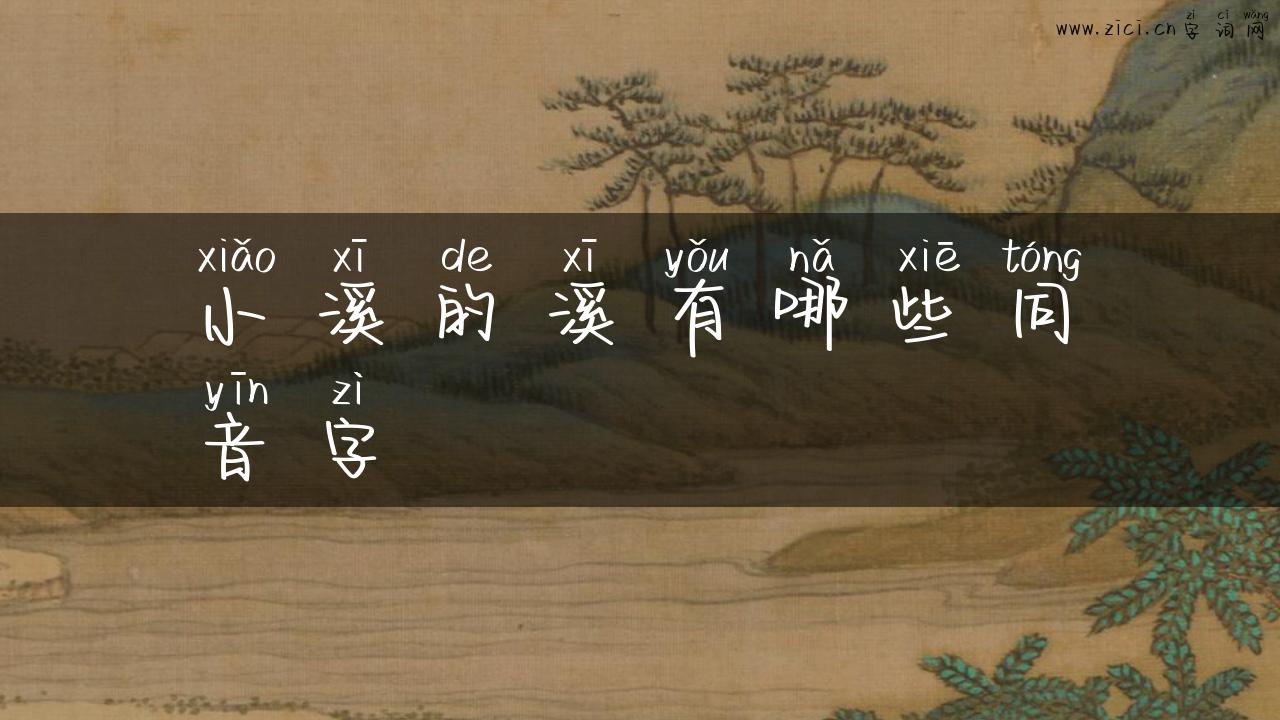 zì cí wǎng
www.zici.cn 字词网
xiǎo xī de xī yǒu nǎ xiē tóng
小溪的溪有哪些同
yīn zì
音字